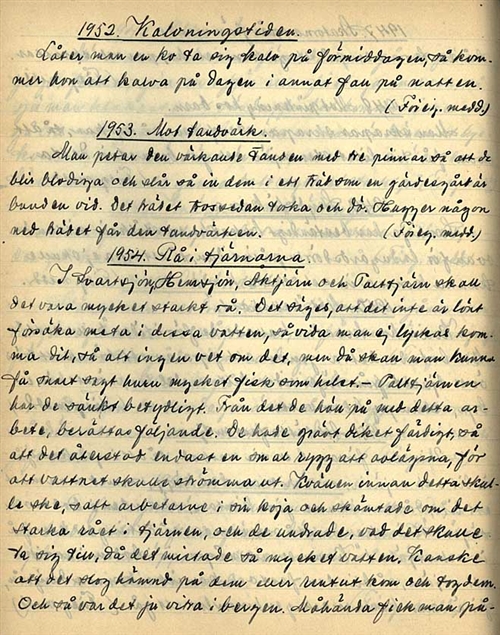 1952. Kalvningstiden.
Låter man en ko ta sig kalv på förmiddagen, så kom-
mer hon att kalva på dagen i annat fall på natten.
(Föreg. medd.)
1953. Mot tandvärk.
Man petar den värkande tanden med tre pinnar så att de
blir blodiga och slår så in dem i ett träd som en gärdesgård är
bunden vid. Det trädet torkar och dör. Hugger någon
ned trädet får den tandvärken. (Föreg. medd.)
1954. Rå i tjärnarna
I Svartsjön, Hemsjön, Aktjärn och Talltjärn skall
det vara mycket starkt rå. Det säges, att det inte är lönt
försöka meta i dessa vatten, såvida man ej lyckas kom-
ma dit, så att ingen vet om det, men då skall man kunna
få snart sagt huru mycket fisk som helst. – Talltjärnen
har de sänkt betydligt. Från det de höll på med detta ar-
bete, berättas följande. De hade grävt diket färdigt, så
att det återstod endast en smal rygg att avlägsna, för
att vattnet skulle strömma ut. Kvällen innan detta skul-
le ske, satt arbetarne i sin koja och skämtade om det
starka rået i tjärnen, och de undrade, vad det skulle
ta sig till, då det mistade så mycket vatten. Kanske
att det slog hämnd på dem eller rentut kom och tog dem.
Och så var det ju vitra i bergen. Måhända fick man på-